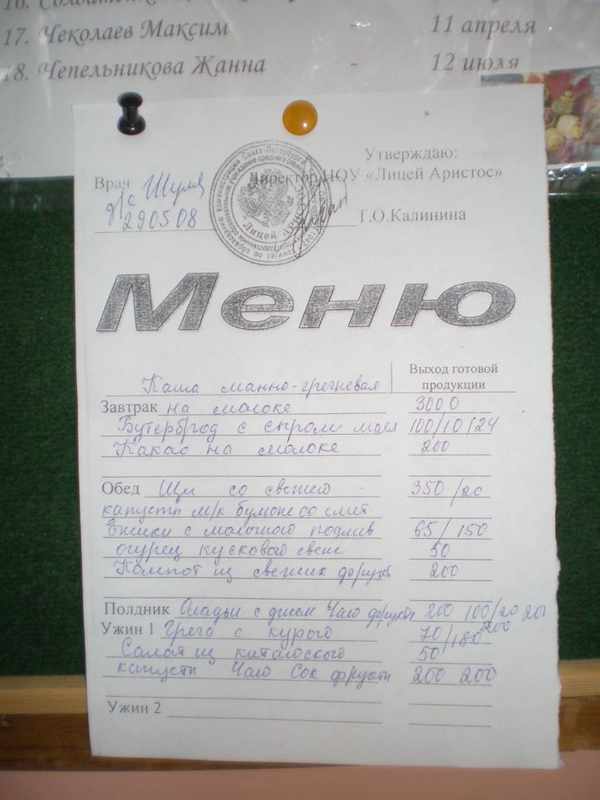 17. Чеколаев Максим - 11 апреля
18. Чепельникова Жанна - 12 июля
Утверждаю:
Врач Директор НОУ «Лицей Аристос»
д/с
290508 Г.О.Калинина
«Лицей Аристос»
Меню
Выход готовой
продукции
Каша манно-гречневая
Завтрак на молоке 300
Бутерброд с сыром масл 100/10/24
Какао на молоке 200
Обед Щи со свежей 350/20
капусты м/к бульоне со смет
с молочной подлив 65/150
огурец кусковой свеж 50
Компот из свежих фрукт 200
Полдник Оладьи с джем Чай фрукты 200 100/20 200
Ужин 1 Греча с курой 70/180
Салат из китайского 50
капусты Чай Сок фрукты 200 200
Ужин 2